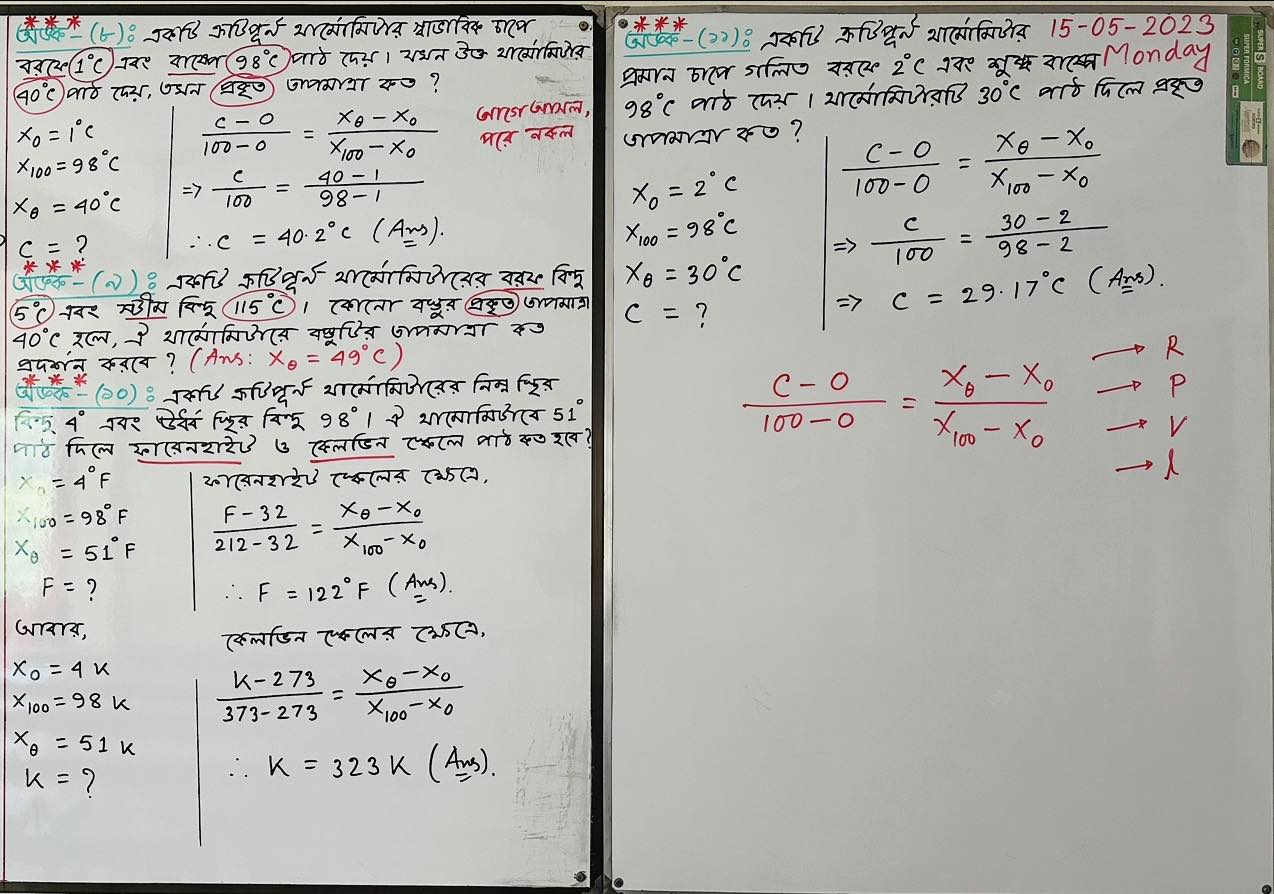 * * *
অংক-(৮): একটি ত্রুটিপূর্ন থার্মোমিটার স্বাভাবিক চাপে
বরফে 1°C এবং বাষ্পে 98°C পাঠ দেয়। যখন উক্ত থার্মোমিটার
40°C পাঠ দেয়, তখন প্রকৃত তাপমাত্রা কত?
X₀ = 1°C
X₁₀₀ = 98°C
X_θ = 40°C
C = ?
(C - 0)/(100 - 0) = (X_θ - X₀)/(X₁₀₀ - X₀)
=> C/100 = (40 - 1)/(98 - 1)
∴ C = 40.2°C (Ans).
আগে আসল,
পরে নকল
* * *
অংক-(৯): একটি ত্রুটিপূর্ন থার্মোমিটারের বরফ বিন্দু
5°C এবং স্টীম বিন্দু 115°C। কোনো বস্তুর প্রকৃত তাপমাত্রা
40°C হলে, ঐ থার্মোমিটারে বস্তুটির তাপমাত্রা কত
প্রদর্শন করবে? (Ans: X_θ = 49°C)
* * *
অংক-(১০): একটি ত্রুটিপূর্ন থার্মোমিটারের নিম্ন স্থির
বিন্দু 4° এবং উর্ধ্ব স্থির বিন্দু 98°। ঐ থার্মোমিটারে 51°
পাঠ দিলে ফারেনহাইট ও কেলভিন স্কেলে পাঠ কত হবে?
X₀ = 4°F
X₁₀₀ = 98°F
X_θ = 51°F
F = ?
ফারেনহাইট স্কেলের ক্ষেত্রে,
(F - 32)/(212 - 32) = (X_θ - X₀)/(X₁₀₀ - X₀)
∴ F = 122°F (Ans).
আবার,
X₀ = 4 K
X₁₀₀ = 98 K
X_θ = 51 K
K = ?
কেলভিন স্কেলের ক্ষেত্রে,
(K - 273)/(373 - 273) = (X_θ - X₀)/(X₁₀₀ - X₀)
∴ K = 323 K (Ans).
* * *
অংক-(১১): একটি ত্রুটিপূর্ন থার্মোমিটার 15-05-2023
প্রমান চাপে গলিত বরফে 2°C এবং শুষ্ক বাষ্পে Monday
98°C পাঠ দেয়। থার্মোমিটারটি 30°C পাঠ দিলে প্রকৃত
তাপমাত্রা কত?
X₀ = 2°C
X₁₀₀ = 98°C
X_θ = 30°C
C = ?
(C - 0)/(100 - 0) = (X_θ - X₀)/(X₁₀₀ - X₀)
=> C/100 = (30 - 2)/(98 - 2)
=> C = 29.17°C (Ans).
(C - 0)/(100 - 0) = (X_θ - X₀)/(X₁₀₀ - X₀)
→ R
→ P
→ V
→ l
SUPER BOARD
SUPER FORMICA